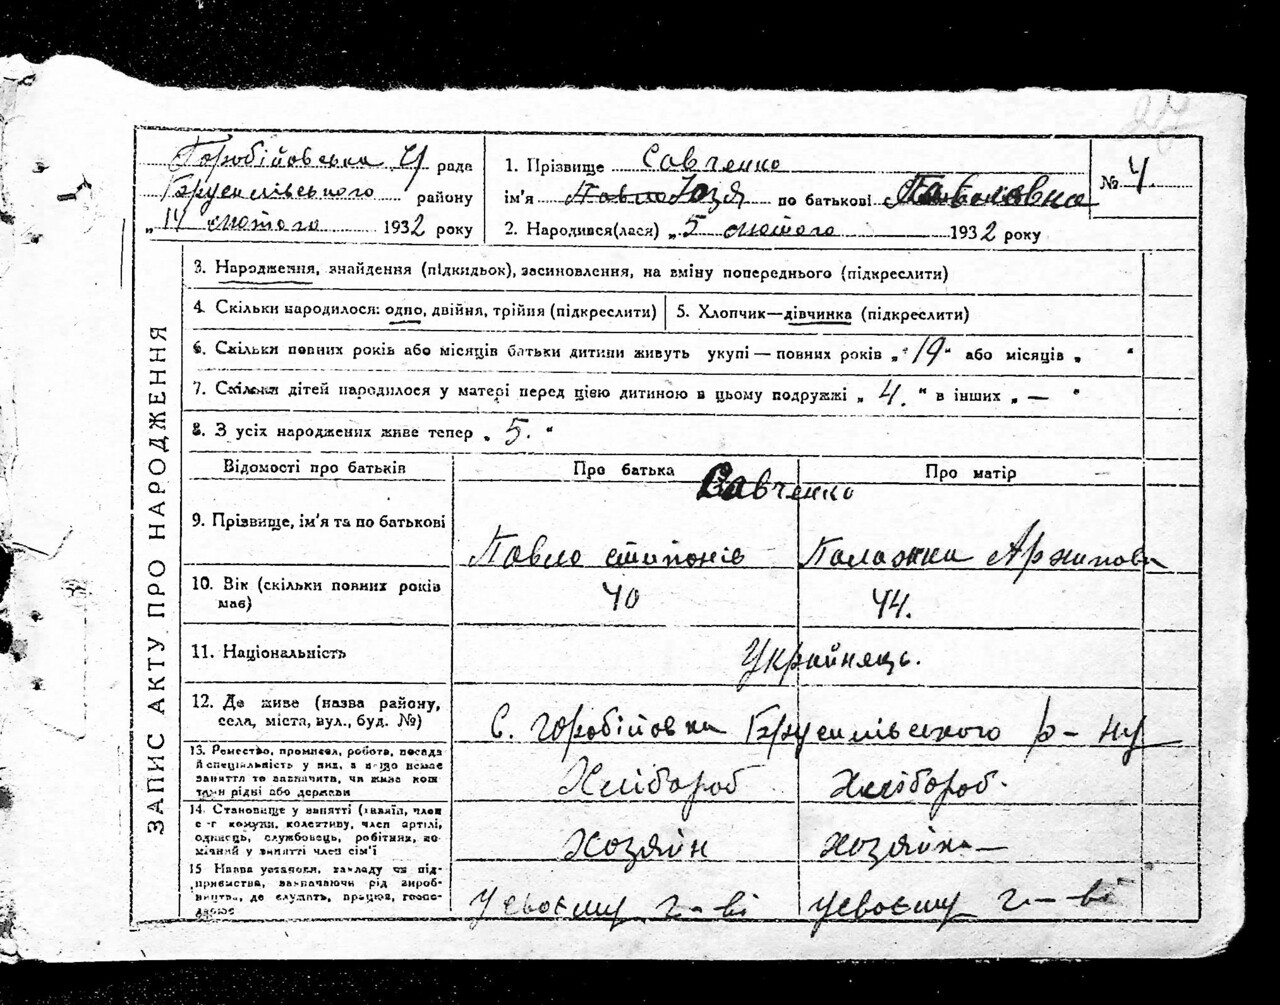 27
Горобійовська рада
Брусилівського району
„14 лютого 1932 року
1. Прізвище Савченко
ім'я Павло Юзя по батькові Павловна
2. Народився(лася) „5 лютого 1932 року
№ 4.
ЗАПИС АКТУ ПРО НАРОДЖЕННЯ
3. Народження, знайдення (підкидьок), засиновлення, на зміну попереднього (підкреслити)
4. Скільки народилося: одно, двійня, трійня (підкреслити)
5. Хлопчик—дівчинка (підкреслити)
6. Скільки повних років або місяців батьки дитини живуть укупі — повних років „19" або місяців „ "
7. Скільки дітей народилося у матері перед цією дитиною в цьому подружжі „4." в інших „—"
8. З усіх народжених живе тепер „5."
Відомості про батьків
Про батька
Про матір
Савченко
9. Прізвище, ім'я та по батькові
Павло
Палажка Архипова
10. Вік (скільки повних років має)
40
44.
11. Національність
Українець.
12. Де живе (назва району,
села, міста, вул., буд. №)
С. Горобійовка Брусилівського р-ну
13. Ремество, промисел, робота, посада
й спеціяльність у них, а якщо немає
заняття то зазначити, чи живе кош
том рідні або держави
Хлібороб
Хлібороб.
14. Становище у занятті (хазяїн, член
с-г комуни, колективу, член артілі,
одинець, службовець, робітник, по
мічний у занятті член сім'ї
Хозяїн
Хозяйка—
15 Назва установи, закладу чи під-
приємства, зазначаючи рід вироб-
ництва, де служить, працює, госпо-
дарює
У своєму г-ві
У своєму г-ві